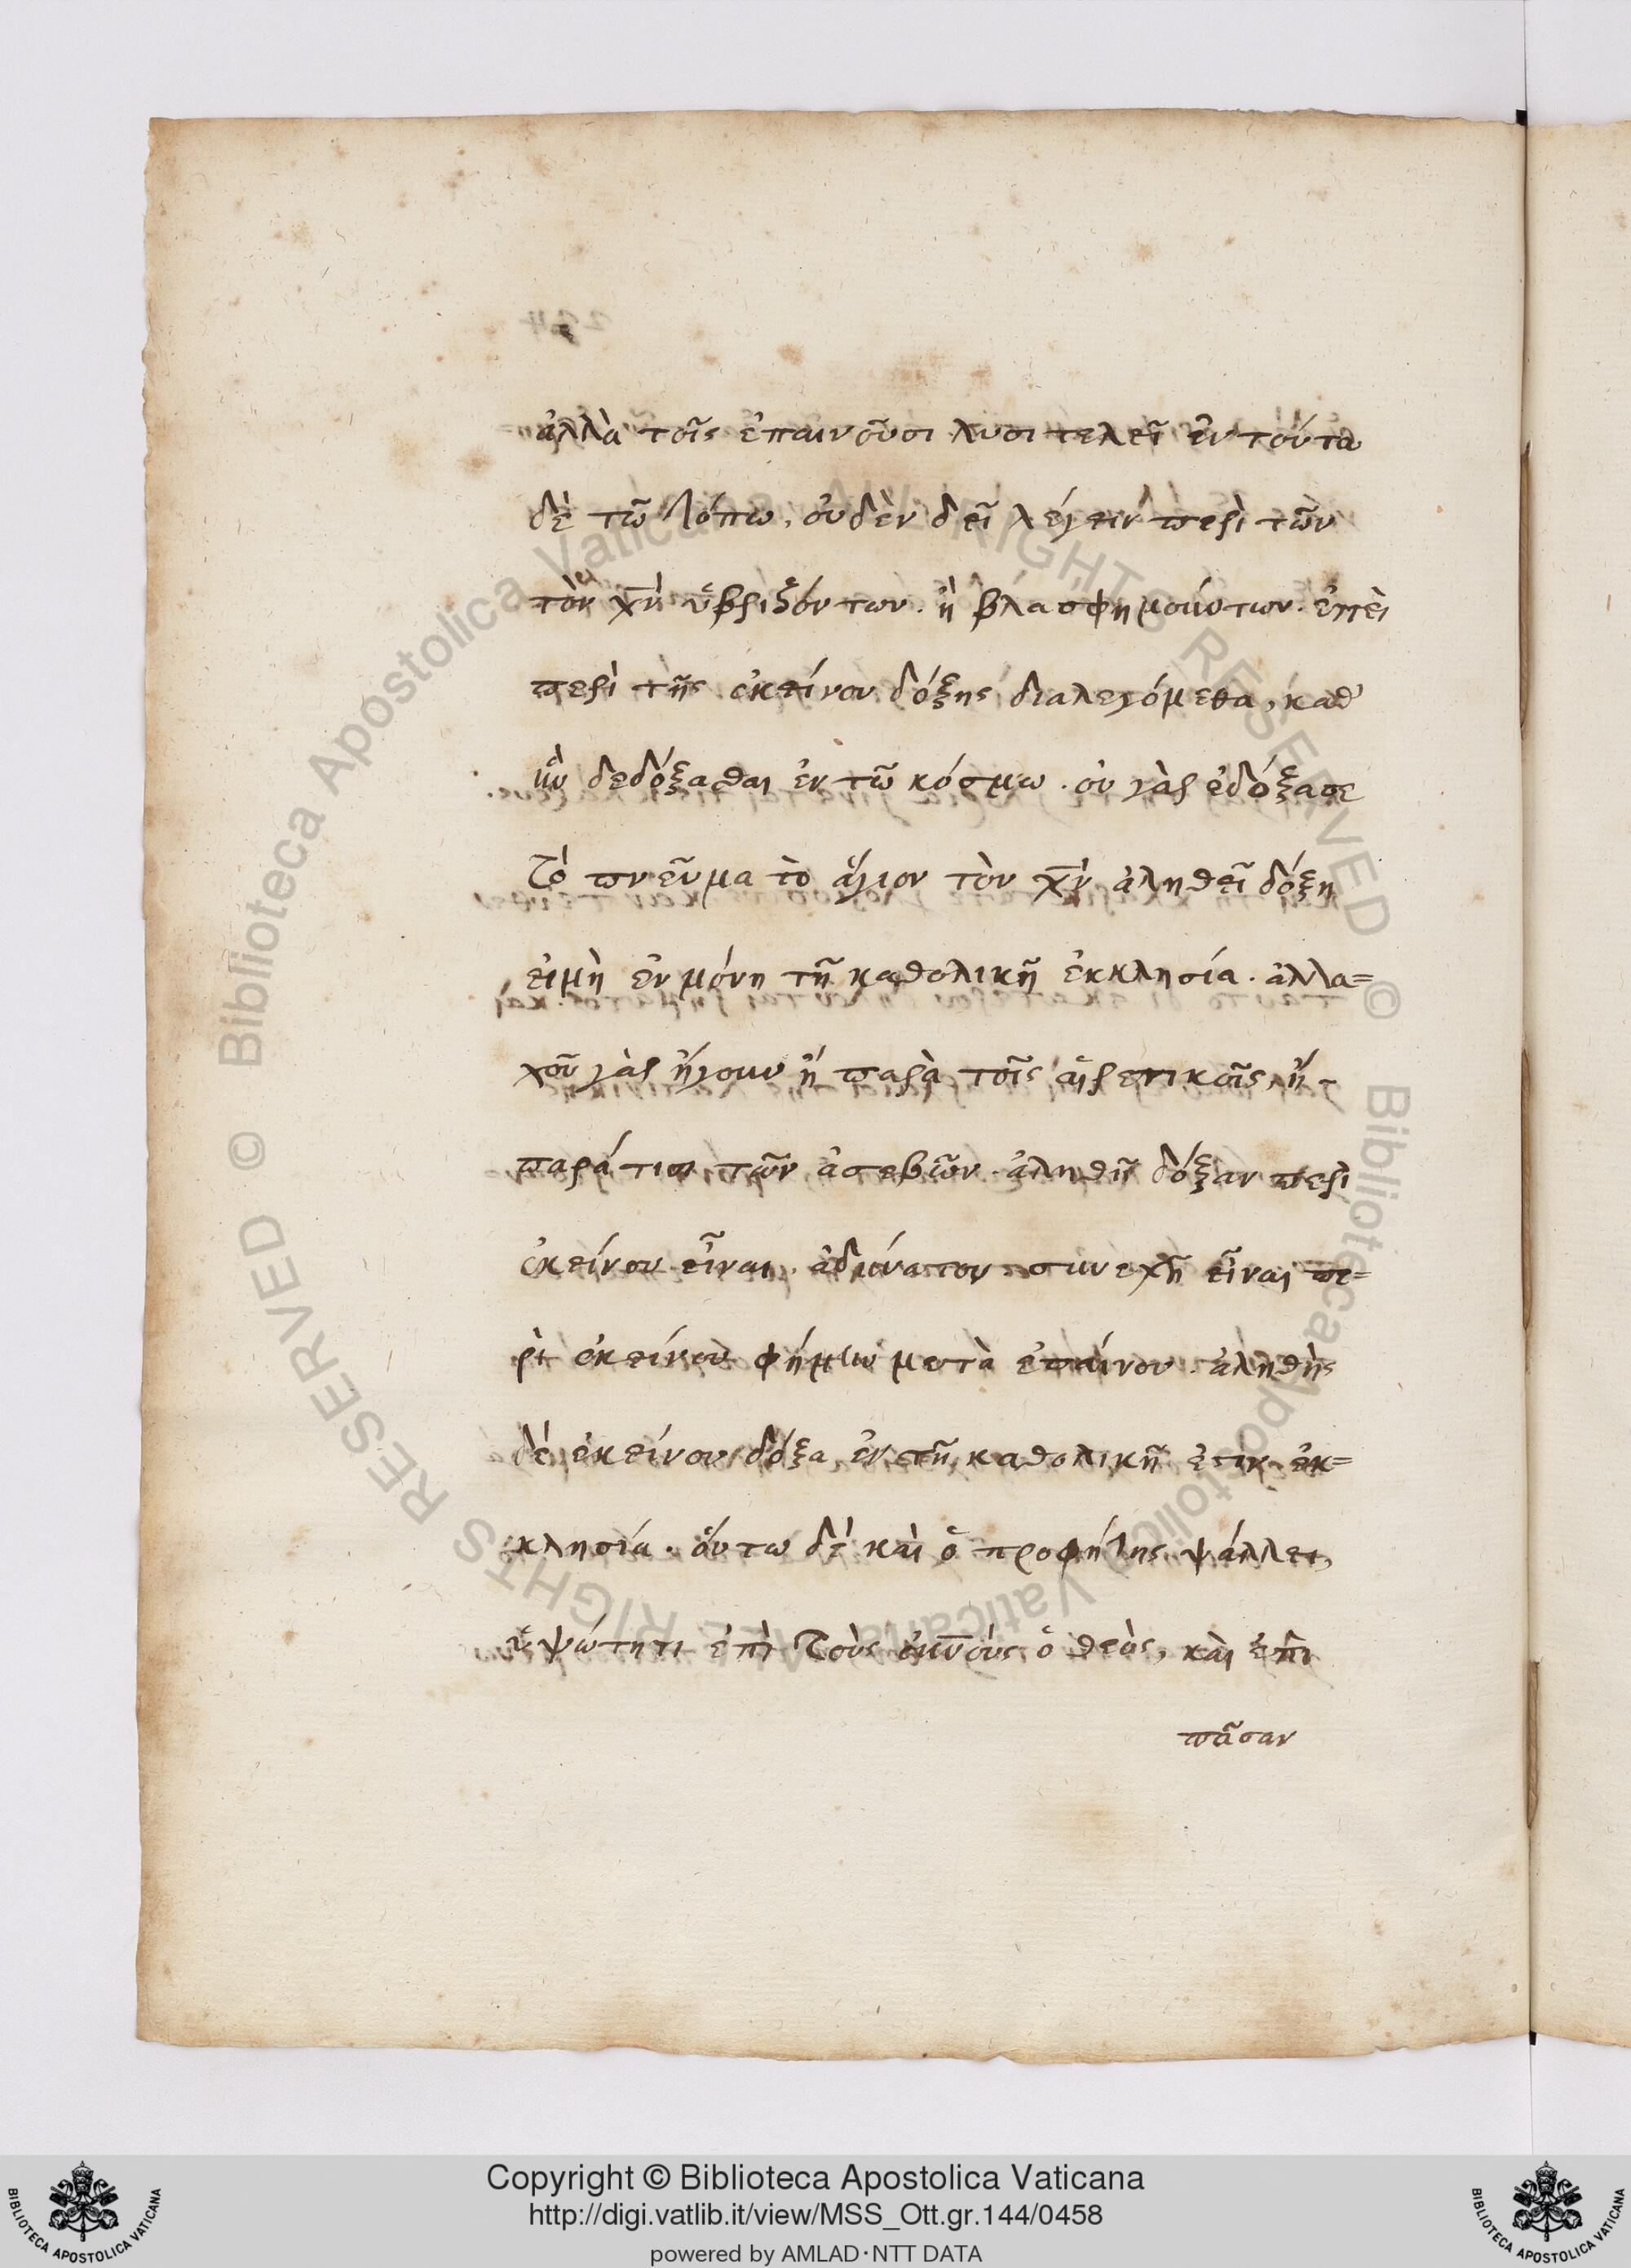 ἀλλὰ τοῖς ἐπαινοῦσι λυσι τελεῖ ἐν τούτω
δὲ τῶ τόπω, οὐδὲν δεῖ λέγειν περὶ τῶν
τὸν χν̅ ὑβριζόντων. ἢ βλασφημούντων. ἐπεὶ
περὶ τῆς ἐκείνου δόξης διαλεγόμεθα, καθ'
ἣν δεδόξασθαι ἐν τῶ κόσμω. οὐ γὰρ ἐδόξασε
τὸ πνεῦμα τὸ ἅγιον τὸν χν̅ ἀληθεῖ δόξη
εἰμὴ ἐν μόνη τῆ καθολικῆ ἐκκλησία. ἀλλα=
χοῦ γὰρ ἤγουν ἢ παρὰ τοῖς αἱρετικοῖς, ἢ
παρά τισι τῶν ἀσεβῶν. ἀληθῆ δόξαν περὶ
ἐκείνου εἶναι. ἀδύνατον συνεχῆ εἶναι πε=
ρὶ ἐκείνου φήμην μετὰ ἐπαίνου. ἀληθὴς
δὲ ἐκείνου δόξα ἐν τῆ καθολικῆ ἐστιν ἐκ=
κλησία. οὕτω δὲ καὶ ὁ προφήτης ψάλλει,
ὑψώτητι ἐπὶ τοὺς οὐν̅οὺς ὁ θεὸς, καὶ ἐπὶ
πᾶσαν
Copyright © Biblioteca Apostolica Vaticana
http://digi.vatlib.it/view/MSS_Ott.gr.144/0458
powered by AMLAD·NTT DATA
BIBLIOTECA APOSTOLICA VATICANA
BIBLIOTECA APOSTOLICA VATICANA
© Biblioteca Apostolica Vaticana ALL RIGHTS RESERVED
© Biblioteca Apostolica Vaticana ALL RIGHTS RESERVED